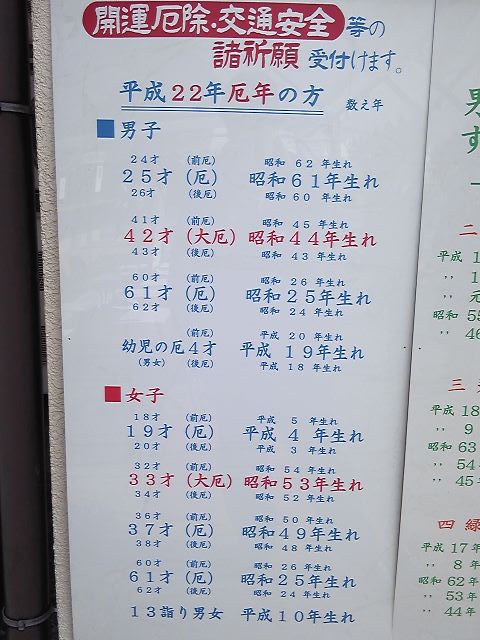 開運厄除・交通安全等の
諸祈願 受付けます。
平成22年厄年の方 数え年
■男子
24才 (前厄) 昭和 62年生れ
25才 (厄) 昭和61年生れ
26才 (後厄) 昭和 60年生れ
41才 (前厄) 昭和 45年生れ
42才 (大厄) 昭和44年生れ
43才 (後厄) 昭和 43年生れ
60才 (前厄) 昭和 26年生れ
61才 (厄) 昭和25年生れ
62才 (後厄) 昭和 24年生れ
(前厄) 平成 20年生れ
幼児の厄4才 平成 19年生れ
(男女) (後厄) 平成 18年生れ
■女子
18才 (前厄) 平成 5年生れ
19才 (厄) 平成 4年生れ
20才 (後厄) 平成 3年生れ
32才 (前厄) 昭和 54年生れ
33才 (大厄) 昭和53年生れ
34才 (後厄) 昭和 52年生れ
36才 (前厄) 昭和 50年生れ
37才 (厄) 昭和49年生れ
38才 (後厄) 昭和 48年生れ
60才 (前厄) 昭和 26年生れ
61才 (厄) 昭和25年生れ
62才 (後厄) 昭和 24年生れ
13詣り男女 平成10年生れ
す
二
平成 1
〃 1
〃 元
昭和 55
〃 46
三
平成 18
〃 9
昭和 63
〃 54
〃 45
四 緑
平成 17年
〃 8年
昭和 62年
〃 53年
〃 44年